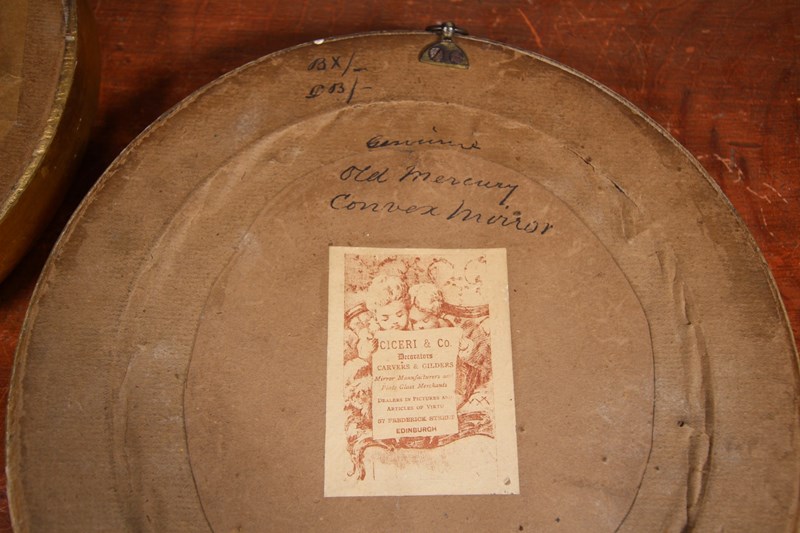 BX/-
Genuine
Old Mercury
Convex Mirror
CICERI & Co.
Decorators
CARVERS & GILDERS
Mirror Manufacturers and
Plate Glass Merchants
DEALERS IN PICTURES AND
ARTICLES OF VIRTU
FREDERICK STREET
EDINBURGH